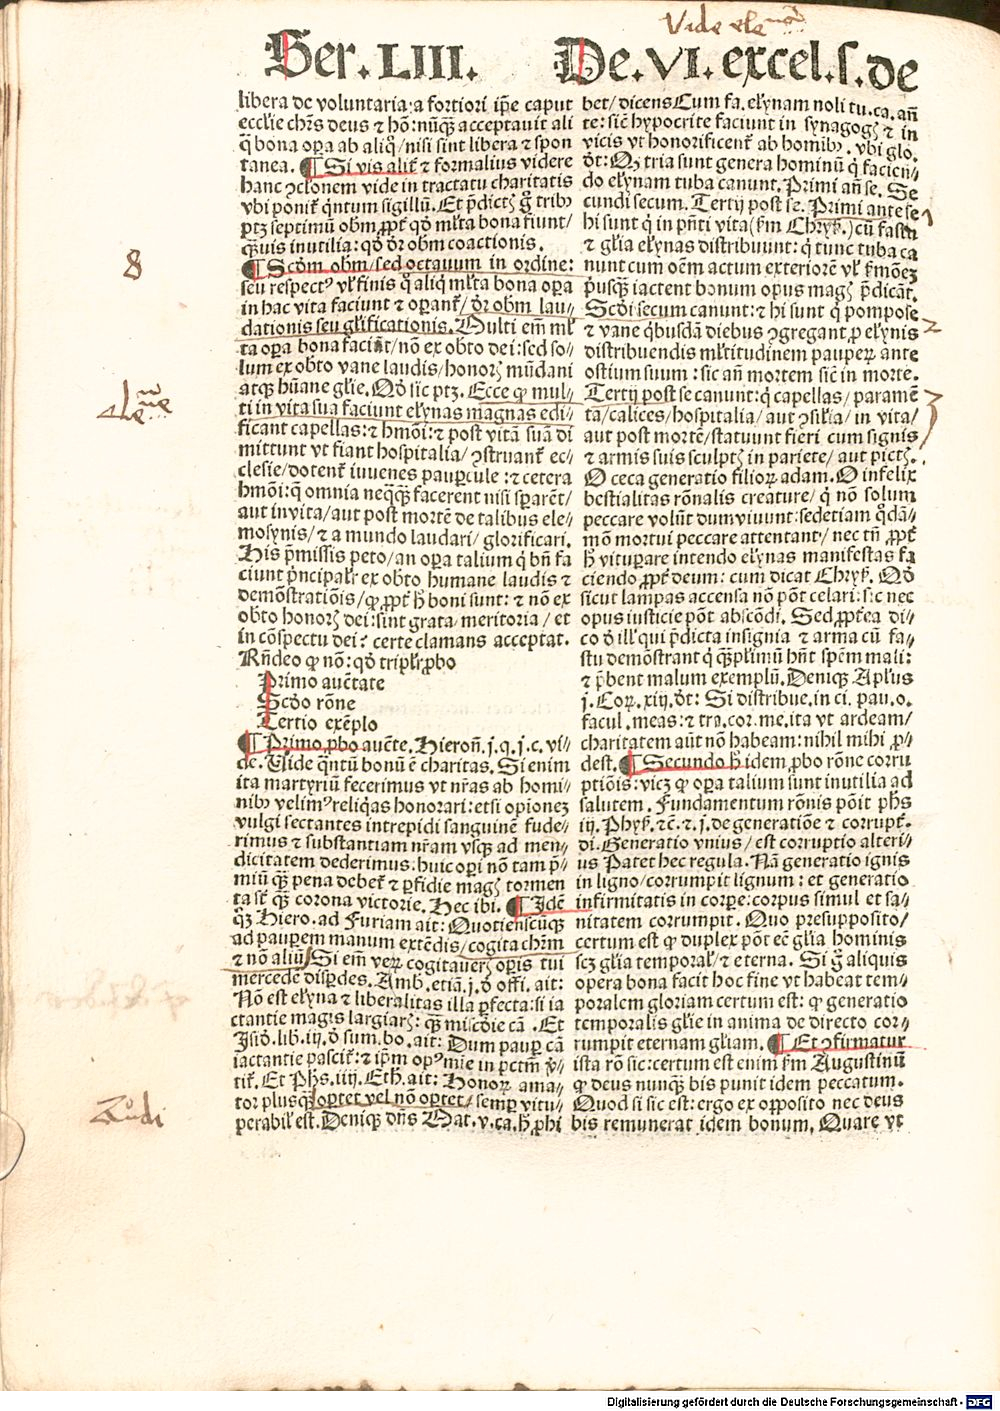 Vide ele
Ser. LIII. De. VI. excel. s. de
libera ⁊ voluntaria: a fortiori ip̄e caput
ecclīe chr̄s deus ⁊ hō: nūq̄ꝫ acceptauit ali
q̄ bona oꝑa ab aliq̊/ nisi sint libera ⁊ spon
tanea. ¶ Si vis alit̄ ⁊ formalius videre
hanc ꝯclonem vide in tractatu charitatis
vbi ponit̄ q̄ntum sigillū. Et p̄dictꝭ ḡ tribꝰ
ptꝫ septimū obm̄ ꝓpt̄ qd̄ ml̄ta bona fiunt/
q̄ꝫuis inutilia: qd̄ dr̄ obm̄ coactionis.
¶ Scd̄m obm̄/ sed octauum in ordine:
seu respectꝰ vl̓ finis q̄ aliq̇ ml̄ta bona oꝑa
in hac vita faciunt ⁊ oꝑant̄/ dr̄ obm̄ lau⸗
dationis seu gl̓ificationis. Multi em̄ ml̄
ta oꝑa bona faciāt/ nō ex obto dei: sed so⸗
lum ex obto vane laudis/ honorꝭ mūdani
atqꝫ hūane gl̓ie. Qd̄ sic ptꝫ. Ecce ꝙ mul⸗
ti in vita sua faciunt elꝫynas magnas edi⸗
ficant capellas: ⁊ hmōi: ⁊ post vitā suā di
mittunt vt fiant hospitalia/ ꝯstruant̄ ec⸗
clesie/ dotent̄ iuuenes pauꝑcule: ⁊ cetera
hmōi: q̄ omnia neq̄qꝫ facerent nisi sꝑarēt/
aut in vita/ aut post mortē de talibus ele⸗
mosynis/ ⁊ a mundo laudari/ glorificari.
His p̄missis peto/ an oꝑa talium q̇ bn̄ fa
ciunt p̄ncipalr̄ ex obto humane laudis ⁊
demōstratiōis/ ꝙ ꝓpt̄ h̄ boni sunt: ⁊ nō ex
obto honorꝭ dei: sint grata/ meritoria/ et
in cōspectu dei? certe clamans acceptat.
Rn̄deo ꝙ nō: qd̄ tripl̓r ꝓbo
Primo auc̄tate
Scd̄o rōne
Tertio exēplo
¶ Primo ꝓbo auc̄te. Hieroñ. j. q. j. c. vi⸗
de. Vide q̄ntū bonū ē charitas. Si enim
ita martyriū fecerimus vt nr̄as ab homi⸗
nibꝰ velimꝰ reliq̇as honorari: etsi opionez
vulgi sectantes intrepidi sanguinē fude⸗
rimus ⁊ substantiam nr̄am vsqꝫ ad men⸗
dicitatem dederimus: huic oꝑi nō tam p̄⸗
miū q̄ꝫ pena debet̄ ⁊ ꝑfidie magꝭ tormen
ta st̄ q̄ꝫ corona victorie. Hec ibi. ¶ Idē
q̇ꝫ Hiero. ad Furiam ait: Quotienscūqꝫ
ad pauꝑem manum extēdis/ cogita chr̄m
⁊ nō aliū/ Si em̄ veꝝ cogitauerꝭ oꝑis tui
mercedē disꝑdes. Amb. etiā. j. d̓ offi. ait:
Nō est elꝫyna ⁊ liberalitas illa ꝑfecta: si ia
ctantie magis largiarꝭ: q̄ꝫ misc̄die cā. Et
Isid̓. lib. iij. d̓ sum. bo. ait: Dum pauꝑ cā
iactantie pascit̄: ⁊ ip̄m opꝰ mie in pctm̄ v̄⸗
tit̄. Et Ph̓s. iiij. Eth̓. ait: Honoꝝ ama⸗
tor plusq̄ꝫ oꝑtet vel nō oꝑtet/ semꝑ vitu⸗
perabil̓ est. Deniqꝫ dn̄s Mat. v. ca. h̄ ꝓhi
bet/ dicens Cum fa. elꝫynam noli tu. ca. an̄
te: sic̄ hypocrite faciunt in synagogꝭ ⁊ in
vicis vt honorificent̄ ab homibꝰ. vbi glo.
dt̓: Qꝫ tria sunt genera hominū q̇ facien⸗
do elꝫynam tuba canunt. Primi an̄ se. Se
cundi secum. Tertij post se. Primi ante se
hi sunt q̇ in pn̄ti vita (ẜm Chryẜ.) cū fastu
⁊ gl̓ia elꝫynas distribuunt: q̇ tunc tuba ca
nunt cum oēm actum exteriorē vl̓ ẜmōez
p̄usq̄ꝫ iactent bonum opus magꝭ p̄dicāt.
Scd̄i secum canunt: ⁊ hi sunt q̇ pompose
⁊ vane q̇busdā diebus ꝯgregant ꝓ elꝫynis
distribuendis ml̄titudinem pauperꝝ ante
ostium suum: sic an̄ mortem sic̄ in morte.
Tertij post se canunt: q̇ capellas/ paramē
ta/ calices/ hospitalia/ aut ꝯsilia/ in vita/
aut post mortē/ statuunt fieri cum signis
⁊ armis suis sculptꝭ in pariete/ aut pictꝭ.
O ceca generatio filioꝝ adam. O infelix
bestialitas rōnalis creature/ q̇ nō solum
peccare volūt dum viuunt: sed etiam q̄dā⸗
mō mortui peccare attentant/ nec tn̄ ꝓpt̄
h̄ vituꝑare intendo elꝫynas manifestas fa
ciendo ꝓpt̄ deum: cum dicat Chryẜ. Qd̓
sicut lampas accensa nō pōt celari: sic nec
opus iusticie pōt abscōdi. Sed ꝓpt̄ea di⸗
co d̓ ill̓ qui p̄dicta insignia ⁊ arma cū fa⸗
stu demōstrant q̇ q̄ꝫplimū hn̄t spēm mali:
⁊ p̄bent malum exemplū. Deniqꝫ Apl̄us
j. Coꝝ. xiij. dt̓: Si distribue. in ci. pau. o.
facul. meas: ⁊ tra. cor. me. ita vt ardeam/
charitatem aūt nō habeam: nihil mihi ꝓ⸗
dest. ¶ Secundo h̄ idem ꝓbo rōne corru
ptiōis: vicꝫ ꝙ oꝑa talium sunt inutilia ad
salutem. Fundamentum rōnis pōit ph̓s
iij. Phyẜ. ⁊c̄. ⁊ j. de generatiōe ⁊ corrupt̄.
di. Generatio vnius/ est corruptio alteri⸗
us Patet hec regula. Nā generatio ignis
in ligno/ corrumpit lignum: et generatio
infirmitatis in corꝑe: corpus simul et sa⸗
nitatem corrumpit. Quo presupposito/
certum est ꝙ duplex pōt eē gl̓ia hominis
scꝫ gl̓ia temporal̓/ ⁊ eterna. Si ḡ aliquis
opera bona facit hoc fine vt habeat tem⸗
poralem gloriam certum est: ꝙ generatio
temporalis gl̓ie in anima de directo cor⸗
rumpit eternam gl̓iam. ¶ Et ꝯfirmatur
ista rō sic: certum est enim ẜm Augustinū
ꝙ deus nunqꝫ bis punit idem peccatum.
Quod si sic est: ergo ex opposito nec deus
bis remunerat idem bonum. Quare vt
8
1
2
3
Digitalisierung gefördert durch die Deutsche Forschungsgemeinschaft - DFG